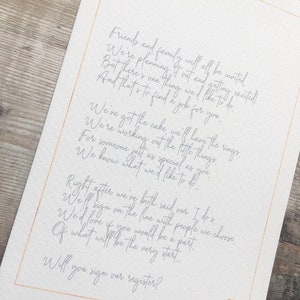 Friends and family will all be invited
We're planning it out and getting excited
But there's one thing we'd like to do
And that's to find a job for you
We've got the cake, we'll have the rings
We're working out the little things
For someone just as special as you
We know what we'd like to do...
Right after we've both said our 'I do's
We'll sign on the line with people we choose
We'd love if you would be a part
Of what will be the very start...
Will you sign our register?